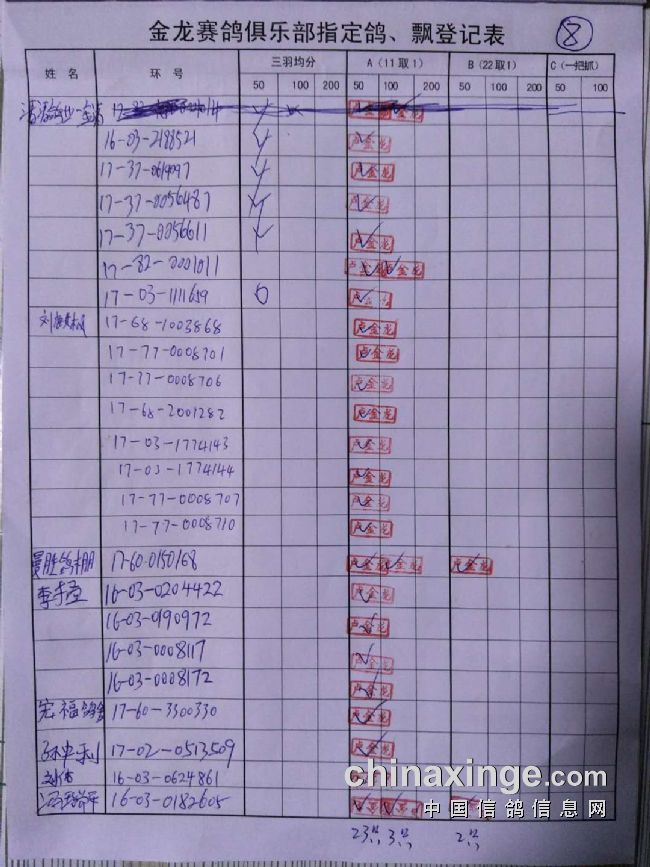 金龙赛鸽俱乐部指定鸽、飘登记表 8
姓名 环号 三羽均分 A（11取1） B（22取1） C（一把抓）
50 100 200 50 100 200 50 100 200 50 100
16-03-2188521 卢金龙
17-37-0614097 卢金龙
17-37-0056487 卢金龙
17-37-0056611 卢金龙
17-82-0001011 卢金龙 卢金龙
17-03-1111659 卢金龙
17-68-1003868 卢金龙
17-77-0008701 卢金龙
17-77-0008706 卢金龙
17-68-2001282 卢金龙
17-03-1774143 卢金龙
17-03-1774144 卢金龙
17-77-0008707 卢金龙
17-77-0008710 卢金龙
胜鸽棚 17-60-0150168 卢金龙 卢金龙 卢金龙
16-03-0204422 卢金龙
16-03-0190972 卢金龙
16-03-0008117 卢金龙
16-03-0008172 卢金龙
宏福鸽舍 17-60-3300330 卢金龙
孙忠利 17-02-0513509 卢金龙
16-03-0624861
16-03-0182605
23只 3只 2只
chinaxinge.com
中国信鸽信息网